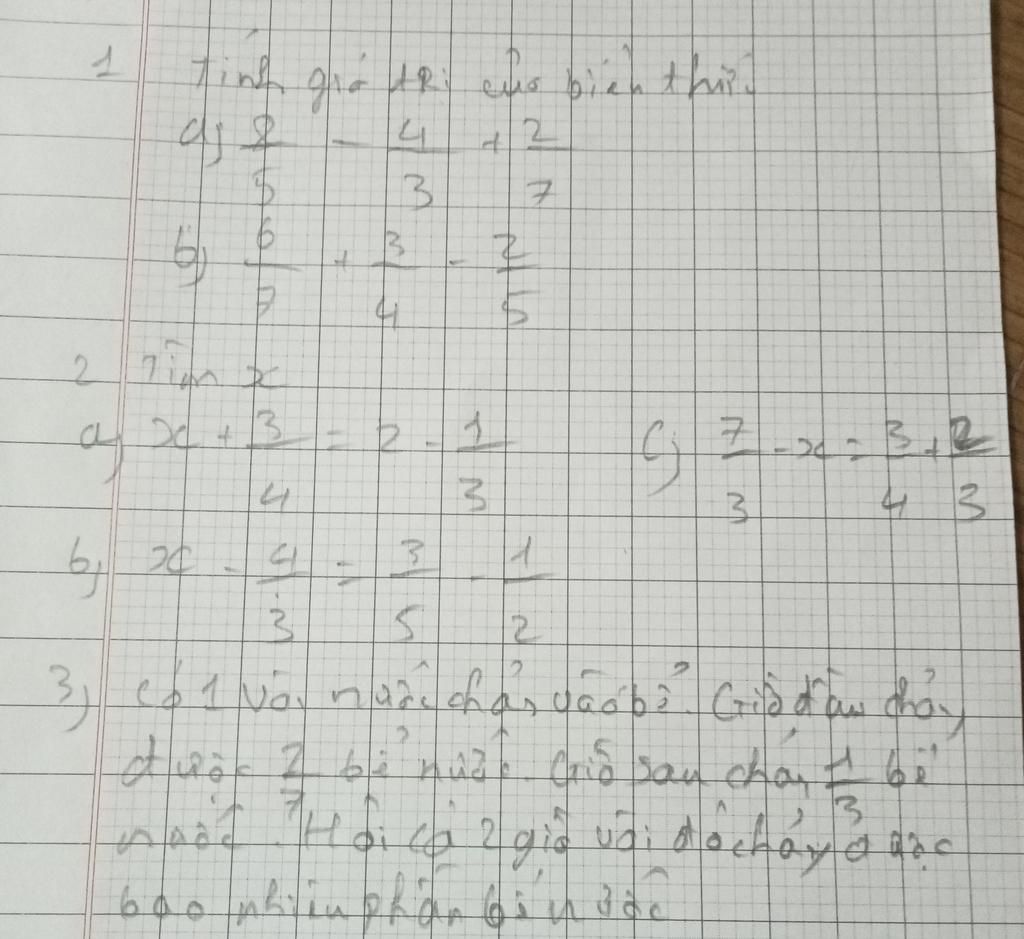 1 Tính giá trị của biển thức
a) 8/5 - 4/3 + 2/7
b) 6/7 + 3/4 - 2/5
2 Tìm x
a) x + 3/4 = 2 - 1/3
c) 7/3 - x = 3/4 + 2/3
b) x - 4/3 = 3/5 - 1/2
3) Có 1 vòi nước chảy vào bể. Giờ đầu chảy
được 2/7 bể nước. Giờ sau chảy 1/3 bể
nước. Hỏi cả 2 giờ vòi đó chảy được
bao nhiêu phần bể nước